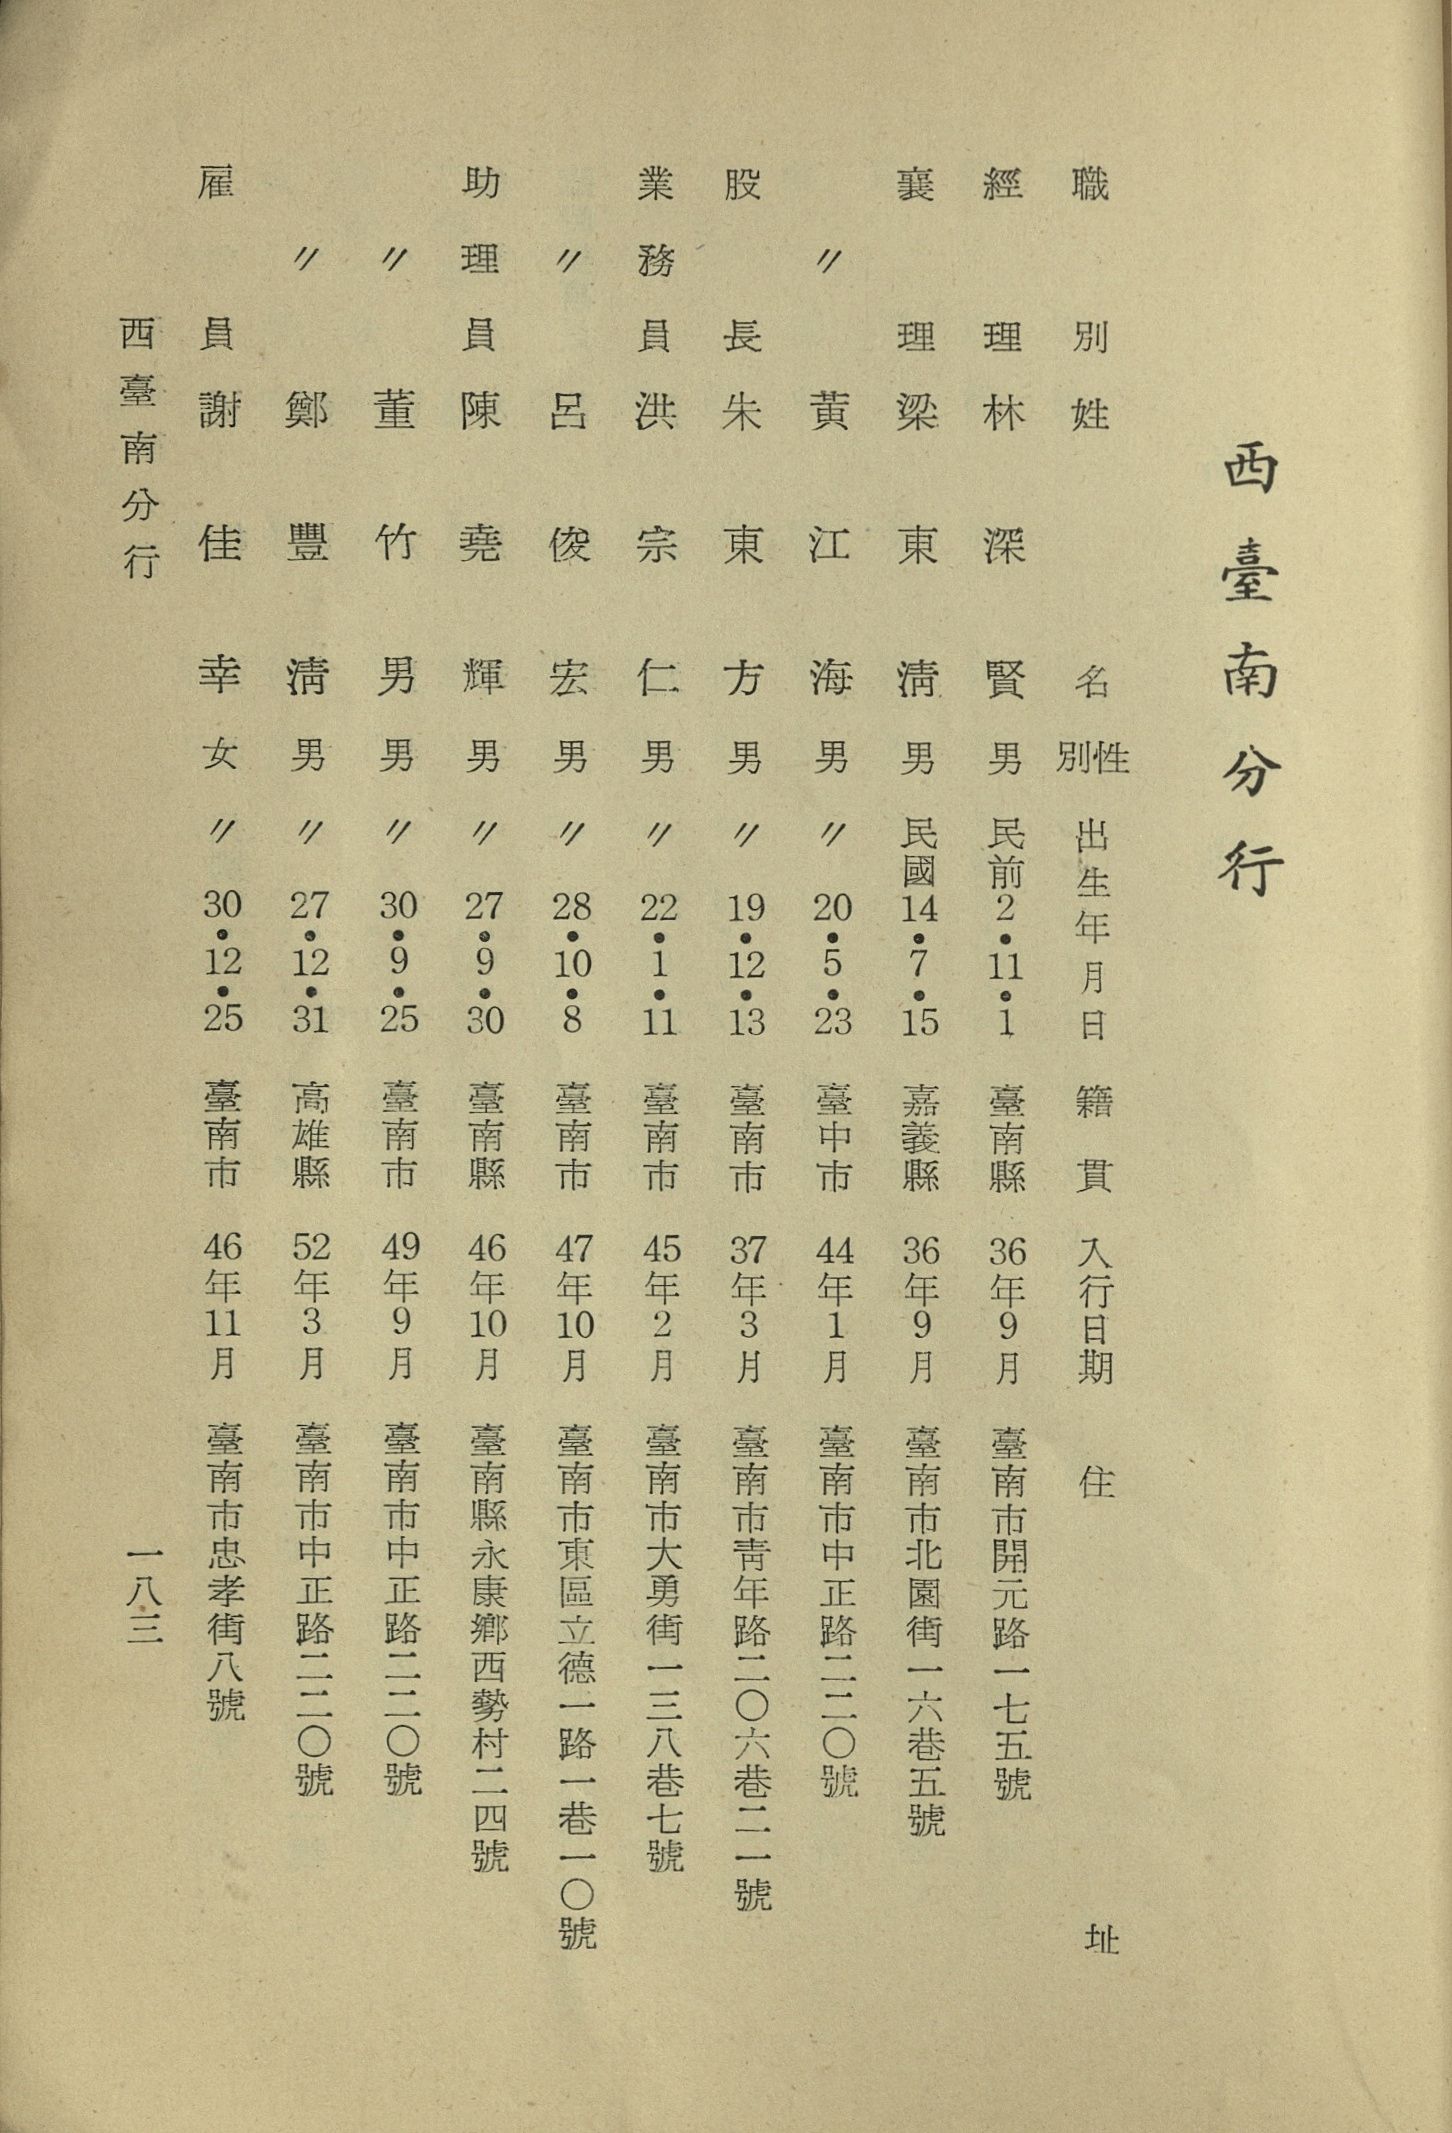 西臺南分行
職別 姓名 性別 出生年月日 籍貫 入行日期 住址
經理 林深賢 男 民前2•11•1 臺南縣 36年9月 臺南市開元路一七五號
襄理 梁東淸 男 民國14•7•15 嘉義縣 36年9月 臺南市北園街一六巷五號
〃 黃江海 男 〃20•5•23 臺中市 44年1月 臺南市中正路二二〇號
股長 朱東方 男 〃19•12•13 臺南市 37年3月 臺南市靑年路二〇六巷二一號
業務員 洪宗仁 男 〃22•1•11 臺南市 45年2月 臺南市大勇街一三八巷七號
〃 呂俊宏 男 〃28•10•8 臺南市 47年10月 臺南市東區立德一路一巷一〇號
助理員 陳堯輝 男 〃27•9•30 臺南縣 46年10月 臺南縣永康鄕西勢村二四號
〃 董竹男 男 〃30•9•25 臺南市 49年9月 臺南市中正路二二〇號
〃 鄭豐淸 男 〃27•12•31 高雄縣 52年3月 臺南市中正路二二〇號
雇員 謝佳幸 女 〃30•12•25 臺南市 46年11月 臺南市忠孝街八號
西臺南分行 一八三